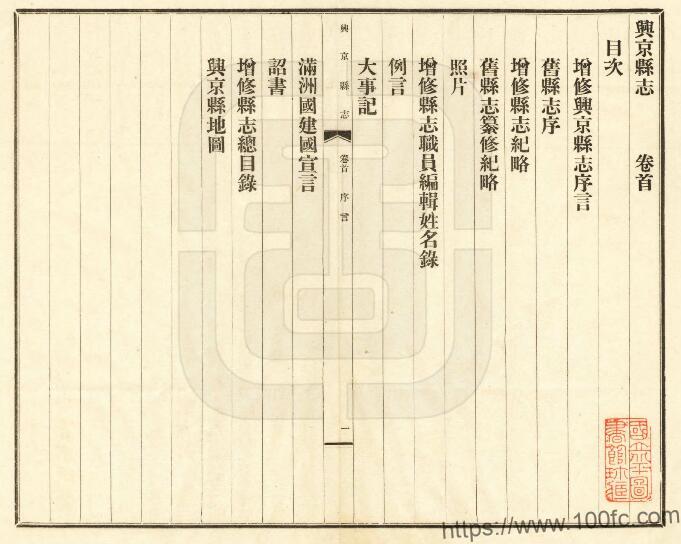 興京縣志　　卷首
目次
增修興京縣志序言
舊縣志序
增修縣志紀略
舊縣志纂修紀略
照片
增修縣志職員編輯姓名錄
例言
大事記
興京縣志　卷首　序言　一
滿洲國建國宣言
詔書
增修縣志總目錄
興京縣地圖
https://www.100fc.com